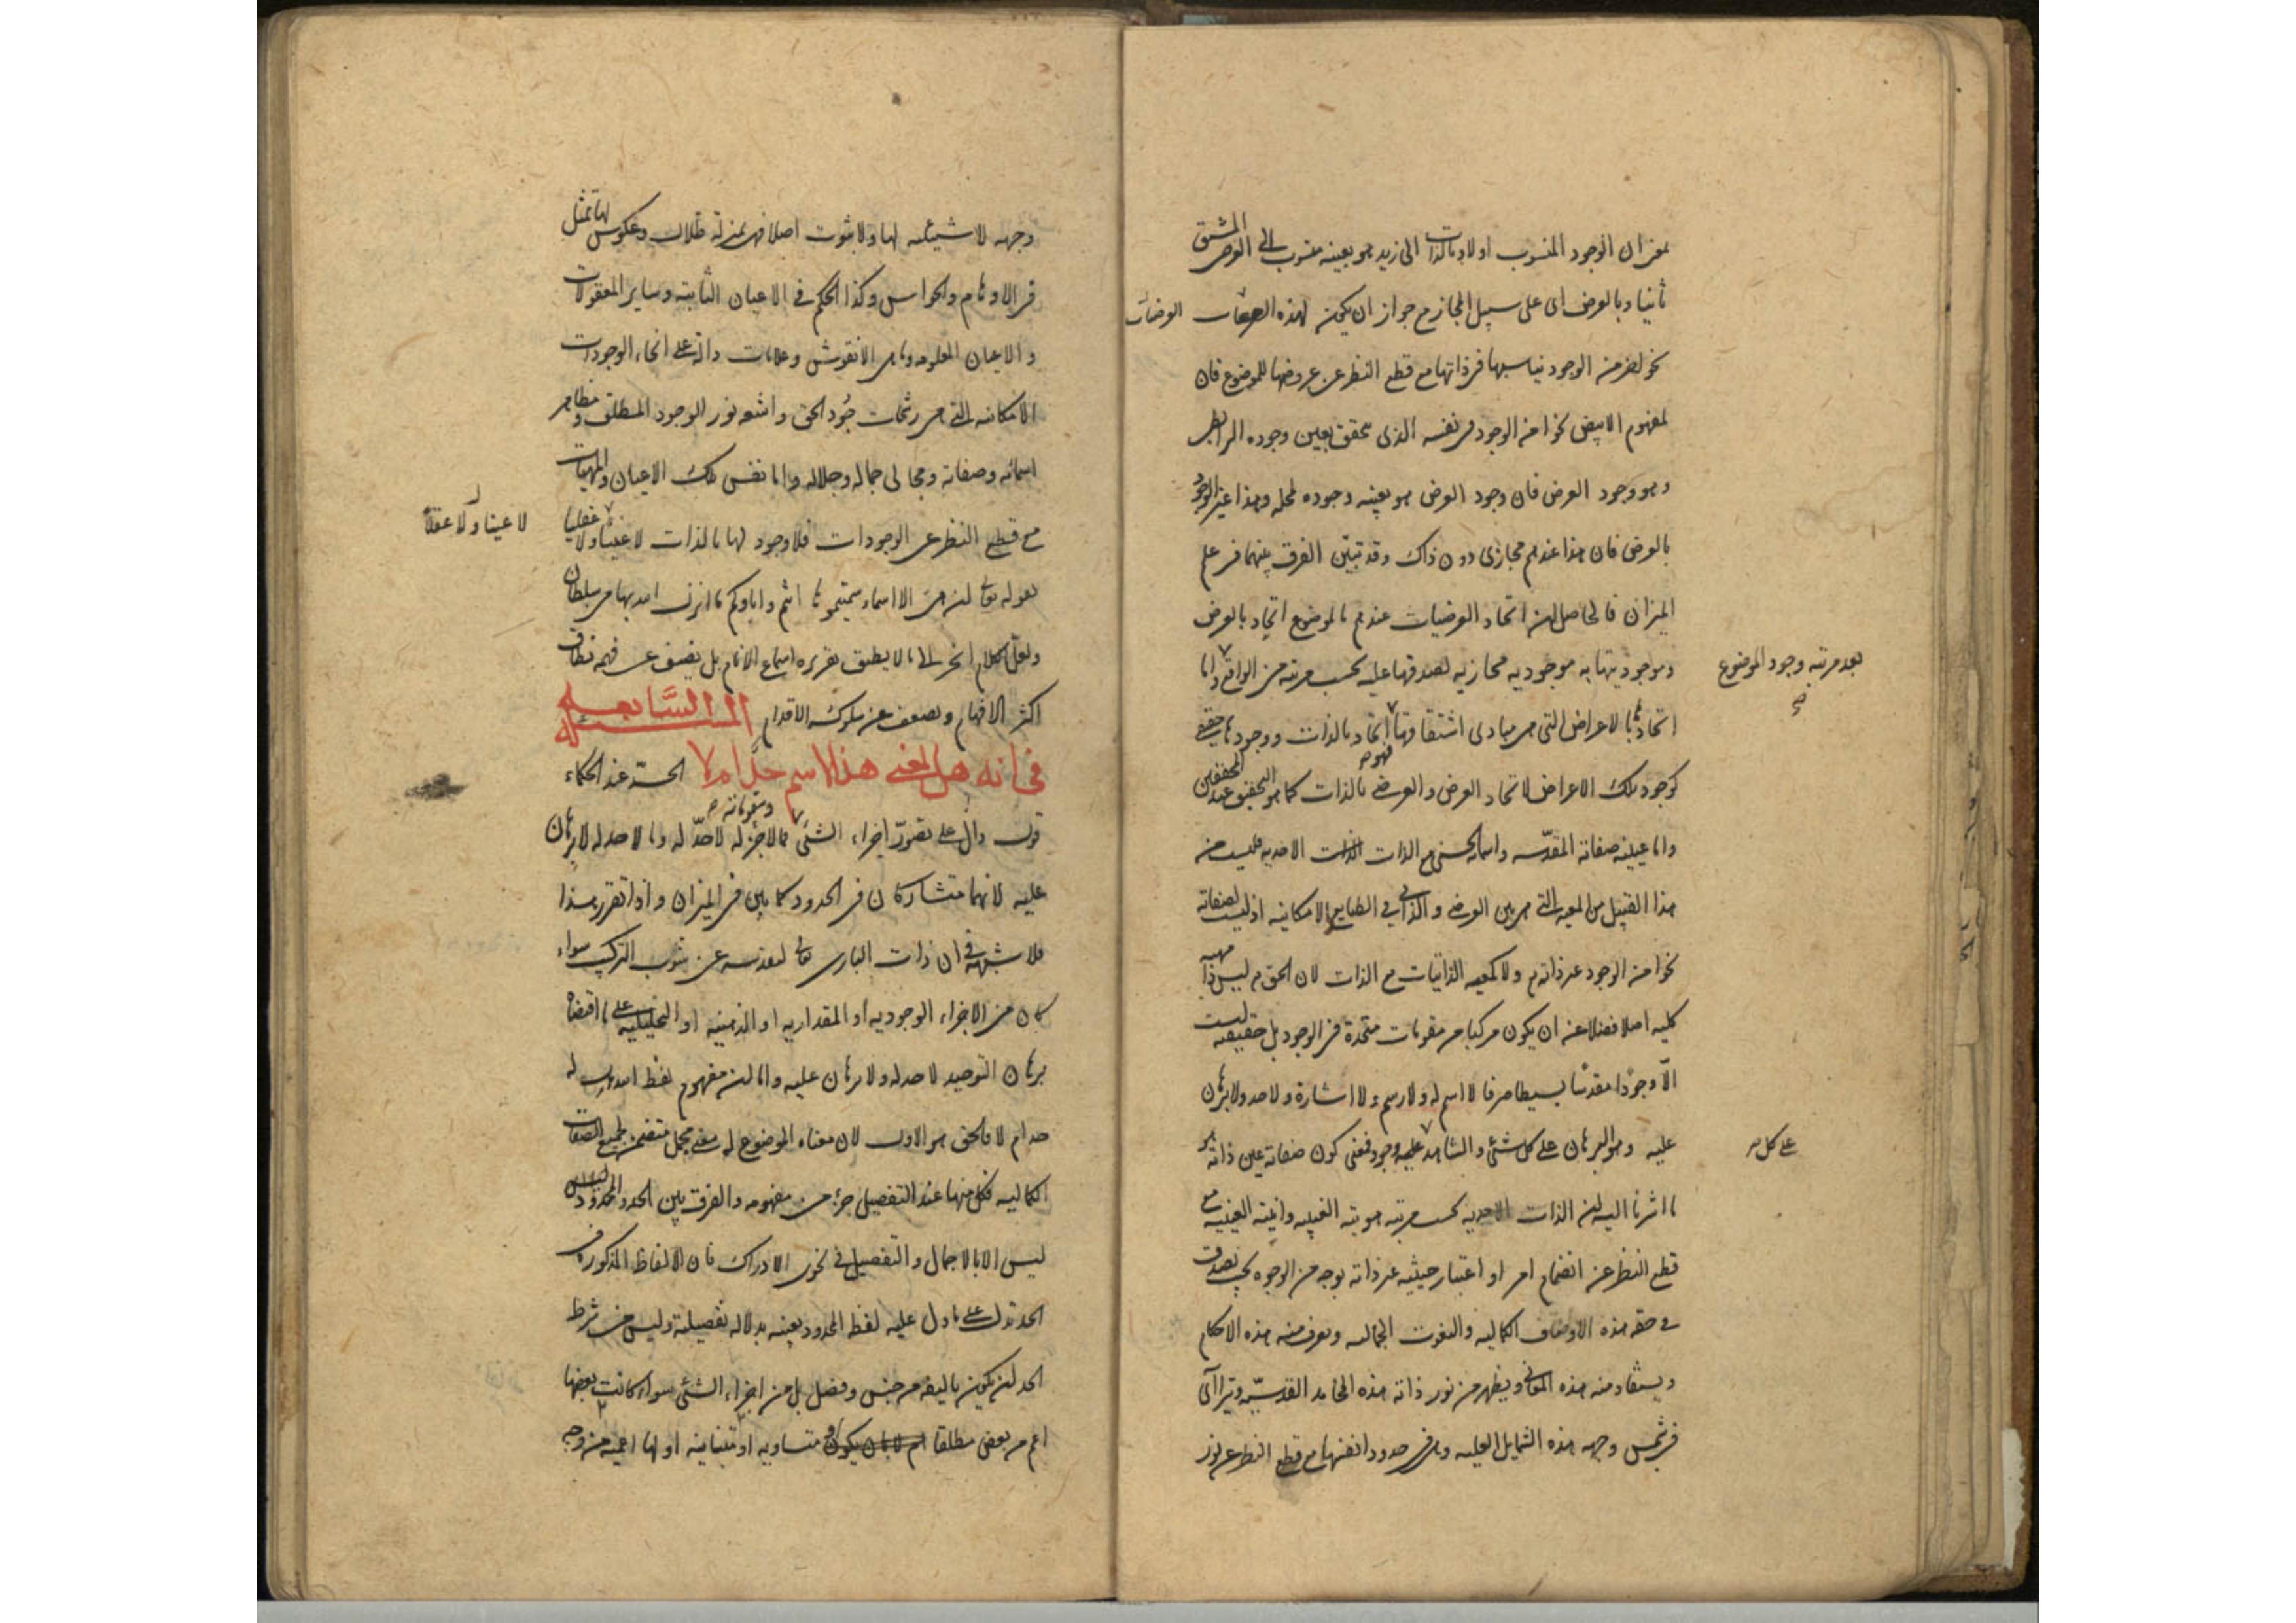 بمعنى ان الوجود المنسوب اولا وبالذات الى زيد هو بعينه منسوب الى العرضى المشتق
ثانيا وبالعرض اى على سبيل المجاز مع جواز ان يكون لهذه العرضيات
نحو اخر من الوجود يناسبها فى ذاتها مع قطع النظر عن عروضها للموضوع فان
لمفهوم الابيض نحوا من الوجود فى نفسه الذى تحقق بعين وجوده الرابطى
وهو وجود العرض فان وجود العرض هو بعينه وجوده لمحله وهذا غير الوجود
بالعرض فان هذا عندهم مجازى دون ذاك وقد تبيّن الفرق بينهما فى علم
الميزان فالحاصل ان اتحاد العرضيات عندهم بالموضوع اتحاد بالعرض
وموجوديتها به موجودية مجازية لصدقها عليه بحسب مرتبة من الواقع واما
بعد مرتبة وجود الموضوع صح
اتحادها بالاعراض التى هى مبادى اشتقاقها فهو اتحاد بالذات ووجودها حقيقى
كوجود تلك الاعراض لاتحاد العرض والعرضى بالذات كما هو التحقيق عند المحققين
واما عينية صفاته المقدّسه واسمائه الحسنى مع الذات الاحديه فليست من
هذا القبيل من المعية التى هى بين العرضى والذاتى فى الطبايع الامكانيه اذ ليست لصفاته
نحوا من الوجود غير ذاته ولا كمعية الذاتيات مع الذات لان الحق ليس ذا مهية
كلية اصلا فضلا عن ان يكون مركبا من مقومات متحدة فى الوجود بل حقيقته ليست
الّا وجودًا مقدسًا بسيطا صرفا لا اسم له ولا رسم ولا اشارة ولا حد ولا برهان
عليه وهو البرهان على كل شئ والشاهد على كل وجود فمعنى كون صفاته عين ذاته هو
ما اشرنا اليه ان الذات الاحديه بحسب مرتبة هويته الغيبيه وانيته العينية مع
قطع النظر عن انضمام امر او اعتبار حيثية غير ذاته بوجه من الوجوه بحيث يصدق
فى حقه هذه الاوصاف الكماليه والنعوت الجماليه ويعرف منه هذه الاحكام
ويستفاد منه هذه المعانى ويظهر من نور ذاته هذه المحامد القدسيّه ويتراآى
فى شمس وجهه هذه الشمايل العليه وهى فى حدود انفسها مع قطع النظر عن نور
وجهه لا شيئيه لها ولا ثبوت اصلا فهى بمنزلة ظلال وعكوس لها تمثل
فى الاوهام والحواس وكذا الحكم فى الاعيان الثابته وساير المعقولات
والاعيان المعلومه وما هى الا نقوش وعلامات دالة على انحاء الوجودات
الامكانيه التى هى رشحات جُود الحق واشعه نور الوجود المطلق ومظاهر
اسمائه وصفاته ومجالى جماله وجلاله واما نفس تلك الاعيان والمهيات
مع قطع النظر عن الوجودات فلا وجود لها بالذات لا عينيا ولا عقليا
لا عينا ولا عقلا
لقوله تعالى ان هى الا اسماء سميتموها انتم واباؤكم ما انزل الله بها من سلطان
ولعل الكلام انجر الى ما لا يطيق تقريره اسماع الانام بل يضيق عن فهمه نطاق
اكثر الافهام ويضعف عن سلوكه الاقدام المسئلة السّابعه
فى انه هل لمعنى هذا الاسم حدّ ام لا الحدّ عند الحكماء
قول دال على تصوّر اجزاء الشئ ومقوماته فما لا جزء له لا حدّ له وما لا حد له لا برهان
عليه لانهما متشاركان فى الحدود كما بين فى الميزان واذا تقرر هذا
فلا شبهة فى ان ذات البارى تعالى لتقدسه عن شوب التركيب سواء
كان من الاجزاء الوجوديه او المقداريه او الذهنيه او التحليلية على ما اقتضاه
برهان التوحيد لا حد له ولا برهان عليه واما ان مفهوم لفظ الله هل له
حد ام لا فالحق هو الاول لان معناه الموضوع له معنى مجمل متضمن لجميع الصفات
الكماليه فكل منها عند التفصيل جزء من مفهومه والفرق بين الحد والمحدود ليس
ليس الا بالاجمال والتفصيل فى نحوى الادراك فان الالفاظ المذكوره فى
الحد تدل على ما دل عليه لفظ المحدود بعينه بدلاله تفصيلية وليس من شرط
الحد ان يكون تاليفه من جنس وفصل بل من اجزاء الشئ سواء كانت بعضها
اعم من بعض مطلقا او متساويه او متباينه او لها اعميه من وجه